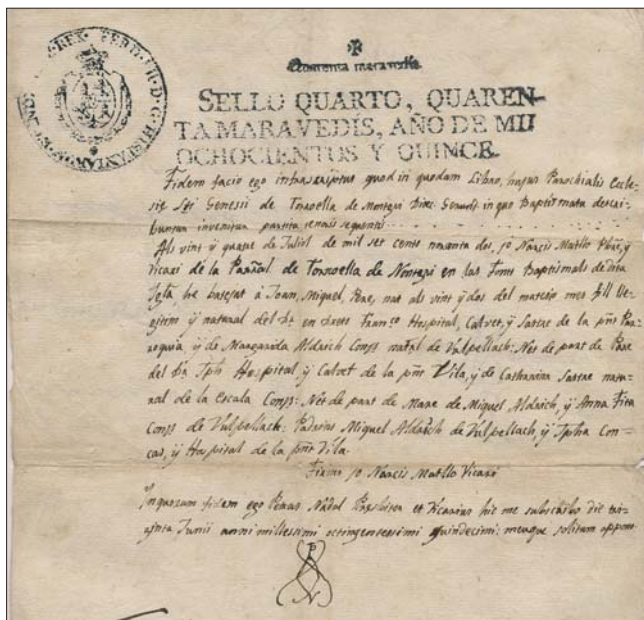 FERD. VII. D. G. HISPANIAR
REX
Quarenta maravedis.
SELLO QUARTO, QUAREN-
TA MARAVEDÍS, AÑO DE MIL
OCHOCIENTOS Y QUINCE.
Fidem facio ego infrascriptus quod in quodam Libro, hujus Parochialis Eccle-
siæ Sti Genesii de Torroella de Montgri in quo Baptismata descri-
buntur invenitur partita tenoris sequentis
Als vint y quatre de Juliol de mil set cents noranta dos, jo Narcis Matllo y
Vicari de la de Torroella de Montgri en las Fonts Baptismals de dita
Igla, he batejat á Joan, Miquel, Pere, nat als vint y dos del mateix mes fill lle-
gitim y natural del Dr en Drets Franco Hospital, Calvet, y Sastre de la pnt Par-
roquia, y de Margarida Aldrich Conjs natal de Vulpellach: Net de part de Pare
del Dr Jph Hospital, y Calvet de la pnt Vila, y de Catharina Sastre natu-
ral de la Escala Conjs: Net de part de Mare de Miquel Aldrich, y Anna Fita
Conjs de Vulpellach: Padrins Miquel Aldrich de Vulpellach, y Jpha Con-
cas, y Hospital de la pnt Vila.
jo Narcis Matllo Vicari
In quorum fidem ego Nadal Presbiter et Vicarius hic me subscribo die tri-
ginta Junii anni millessimi octingentessimi quindecimi: meaque solitum appono